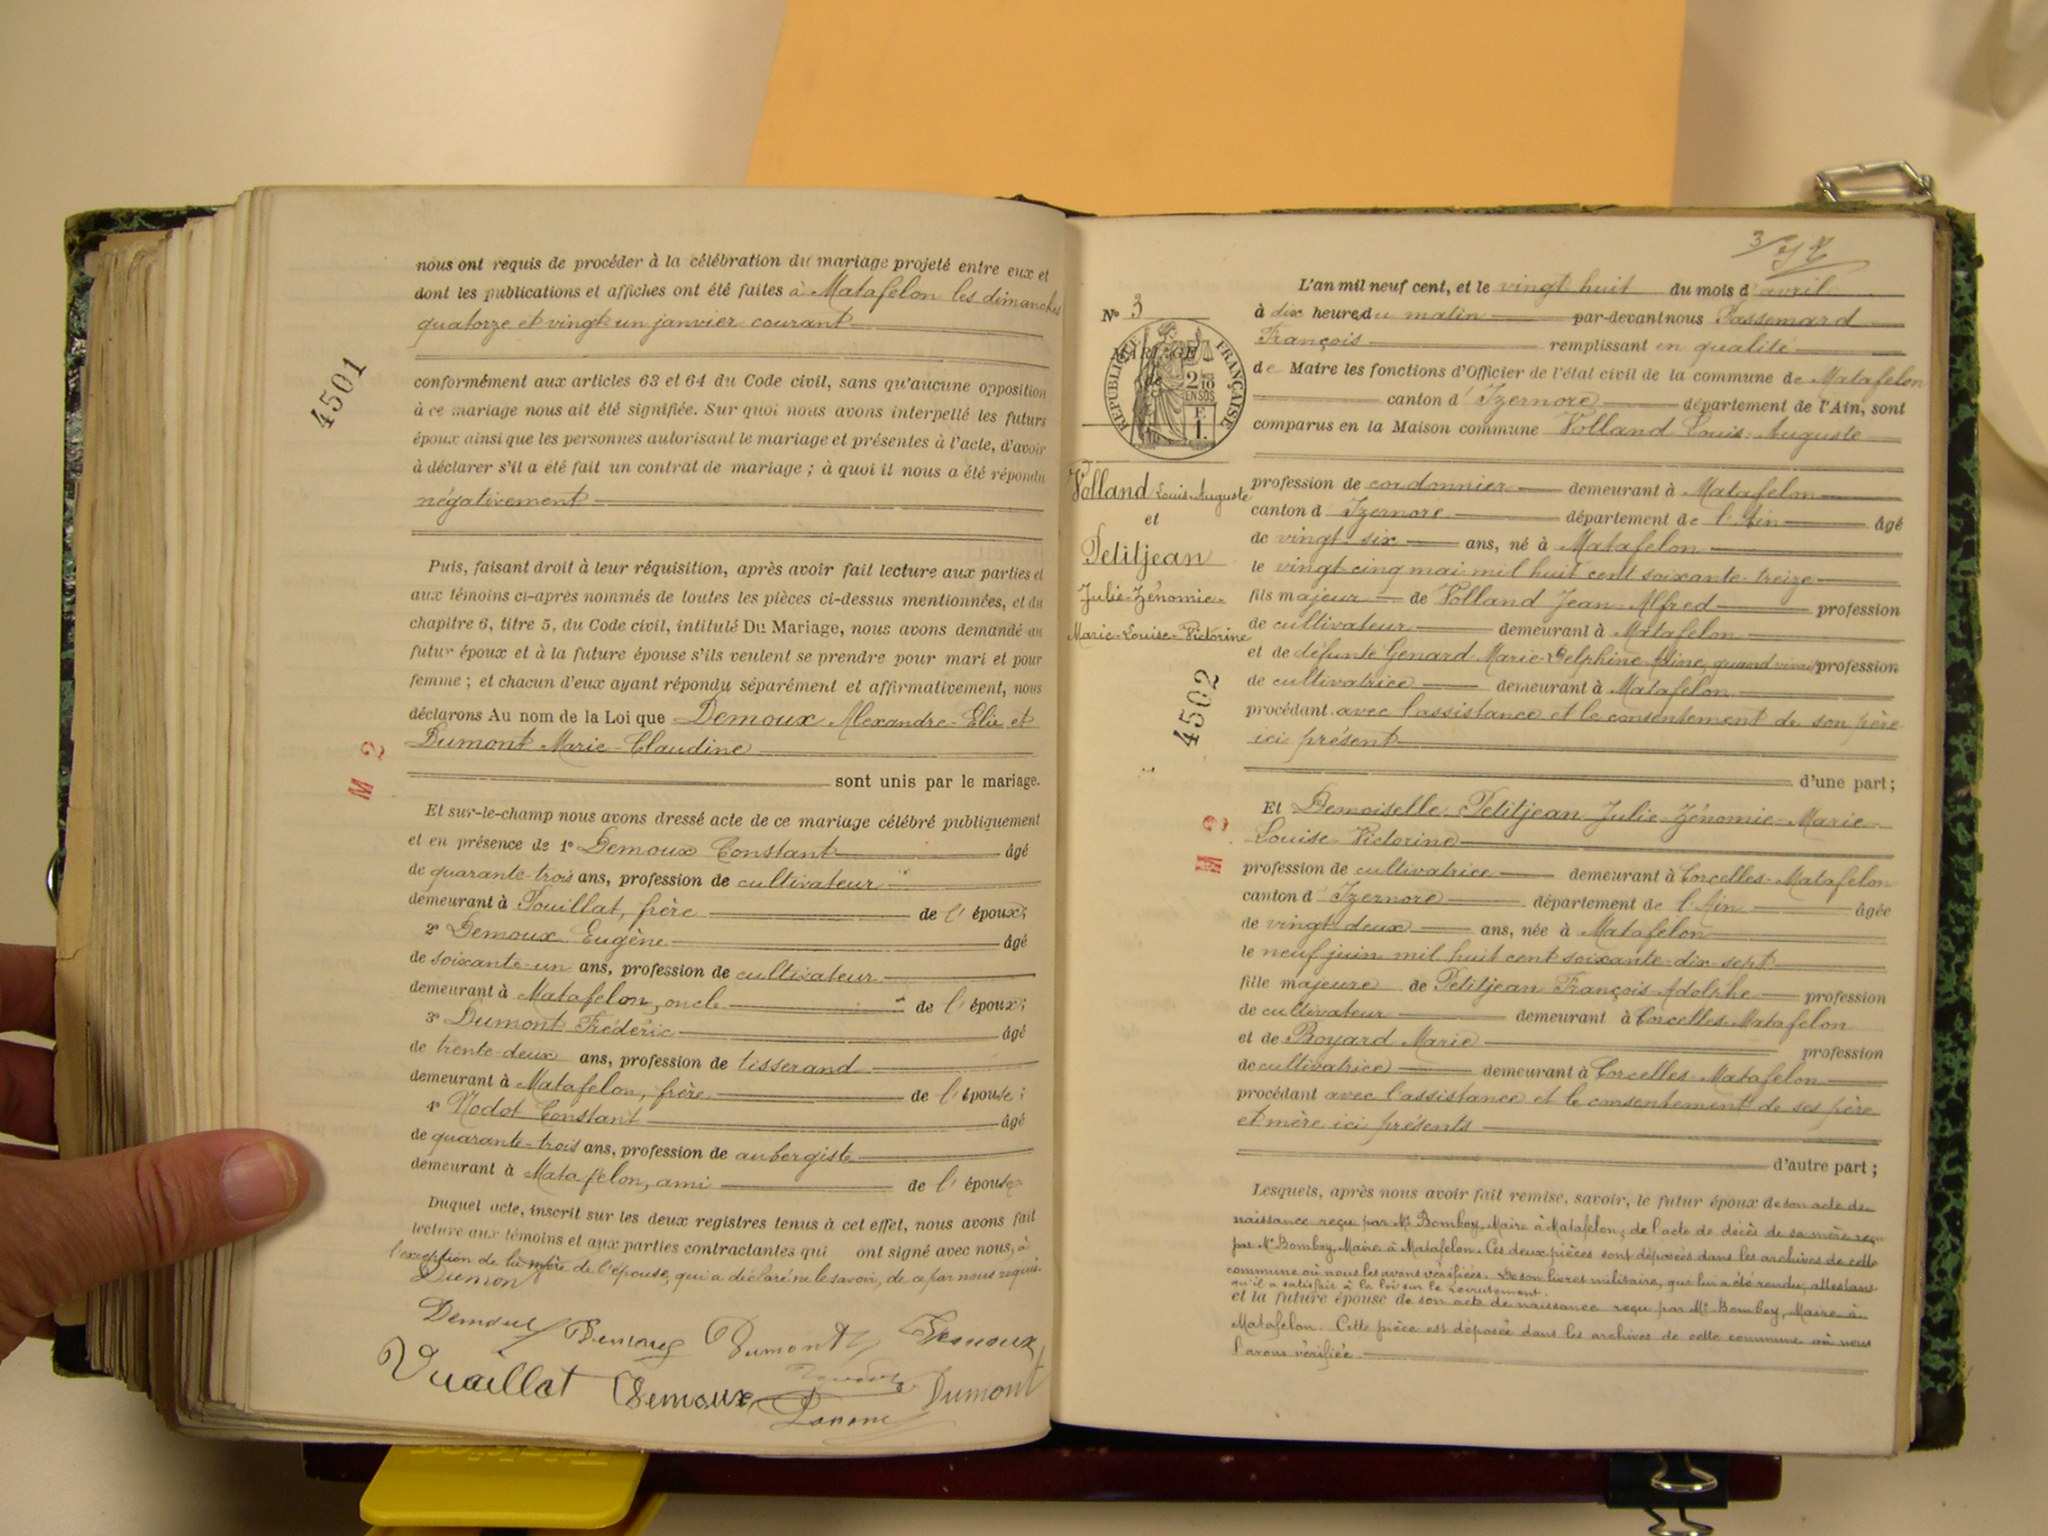 nous ont requis de procéder à la célébration du mariage projeté entre eux et
dont les publications et affiches ont été faites à Matafelon les dimanches
quatorze et vingt un janvier courant
conformément aux articles 63 et 64 du Code civil, sans qu'aucune opposition
à ce mariage nous ait été signifiée. Sur quoi nous avons interpellé les futurs
époux ainsi que les personnes autorisant le mariage et présentes à l'acte, d'avoir
à déclarer s'il a été fait un contrat de mariage ; à quoi il nous a été répondu
négativement
Puis, faisant droit à leur réquisition, après avoir fait lecture aux parties et
aux témoins ci-après nommés de toutes les pièces ci-dessus mentionnées, et du
chapitre 6, titre 5, du Code civil, intitulé Du Mariage, nous avons demandé au
futur époux et à la future épouse s'ils veulent se prendre pour mari et pour
femme ; et chacun d'eux ayant répondu séparément et affirmativement, nous
déclarons Au nom de la Loi que Demoux Alexandre-Elie et
Dumont Marie-Claudine
sont unis par le mariage.
Et sur-le-champ nous avons dressé acte de ce mariage célébré publiquement
et en présence de 1° Demoux Constant âgé
de quarante-trois ans, profession de cultivateur
demeurant à Pouillat, frère de l'époux;
2° Demoux Eugène âgé
de soixante-un ans, profession de cultivateur
demeurant à Matafelon, oncle de l'époux;
3° Dumont Frédéric âgé
de trente-deux ans, profession de tisserand
demeurant à Matafelon, frère de l'épouse;
4° Nodot Constant âgé
de quarante-trois ans, profession de aubergiste
demeurant à Matafelon, ami de l'épouse
Duquel acte, inscrit sur les deux registres tenus à cet effet, nous avons fait
lecture aux témoins et aux parties contractantes qui ont signé avec nous, à
l'exception de la mère de l'épouse, qui a déclaré ne le savoir, de ce par nous requis.
Dumont
Demoux Demoux Dumont Demoux
Vuaillat Demoux Dumont
4501
M 2
3
N° 3
MARIAGE
de
RÉPUBLIQUE FRANÇAISE
2/10
EN SUS
F
1.
Volland Louis-Auguste
et
Petitjean
Julie-Zénomie-
Marie-Louise-Victorine
4502
M 3
L'an mil neuf cent, et le vingt huit du mois d'avril
à dix heures du matin par-devant nous Passemard
François remplissant en qualité
de Maire les fonctions d'Officier de l'état civil de la commune de Matafelon
canton d'Izernore département de l'Ain, sont
comparus en la Maison commune Volland Louis-Auguste
profession de cordonnier demeurant à Matafelon
canton d'Izernore département de l'Ain âgé
de vingt-six ans, né à Matafelon
le vingt-cinq mai mil huit cent soixante-treize
fils majeur de Volland Jean-Alfred profession
de cultivateur demeurant à Matafelon
et de défunte Genard Marie-Delphine Aline, quand vivait profession
de cultivatrice demeurant à Matafelon
procédant avec l'assistance et le consentement de son père
ici présent
d'une part;
Et Demoiselle Petitjean Julie-Zénomie-Marie-
Louise-Victorine
profession de cultivatrice demeurant à Corcelles-Matafelon
canton d'Izernore département de l'Ain âgée
de vingt-deux ans, née à Matafelon
le neuf juin mil huit cent soixante-dix-sept
fille majeure de Petitjean François Adolphe profession
de cultivateur demeurant à Corcelles-Matafelon
et de Boyard Marie profession
de cultivatrice demeurant à Corcelles-Matafelon
procédant avec l'assistance et le consentement de ses père
et mère ici présents
d'autre part;
Lesquels, après nous avoir fait remise, savoir, le futur époux de son acte de
naissance reçu par Mr Bomboy, Maire à Matafelon, de l'acte de décès de sa mère reçu
par Mr Bomboy, Maire à Matafelon. Ces deux pièces sont déposées dans les archives de cette
commune où nous les avons vérifiées. De son livret militaire, qui lui a été rendu, attestant
qu'il a satisfait à la loi sur le recrutement.
et la future épouse de son acte de naissance reçu par Mr Bomboy, Maire à
Matafelon. Cette pièce est déposée dans les archives de cette commune où nous
l'avons vérifiée.